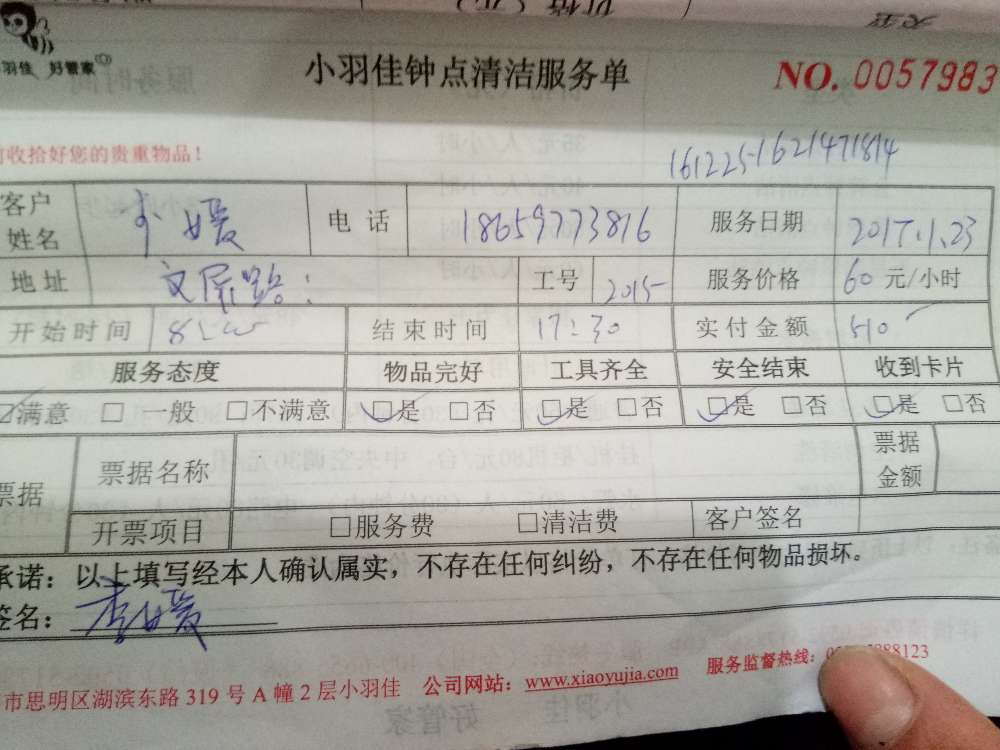 羽佳 好管家
小羽佳钟点清洁服务单
NO. 0057983
收拾好您的贵重物品!
161225-1621471814
客户姓名 电话 18659773816 服务日期 2017.1.23
地址 工号 2015 服务价格 60 元/小时
开始时间 8: 结束时间 17:30 实付金额 510
服务态度 物品完好 工具齐全 安全结束 收到卡片
☑满意 □ 一般 □不满意 ☑是 □否 ☑是 □否 ☑是 □否 ☑是 □否
票据 票据名称 票据金额
开票项目 □服务费 □清洁费 客户签名
承诺：以上填写经本人确认属实，不存在任何纠纷，不存在任何物品损坏。
签名：李媛
市思明区湖滨东路 319 号 A 幢 2 层小羽佳 公司网站：www.xiaoyujia.com 服务监督热线：88123